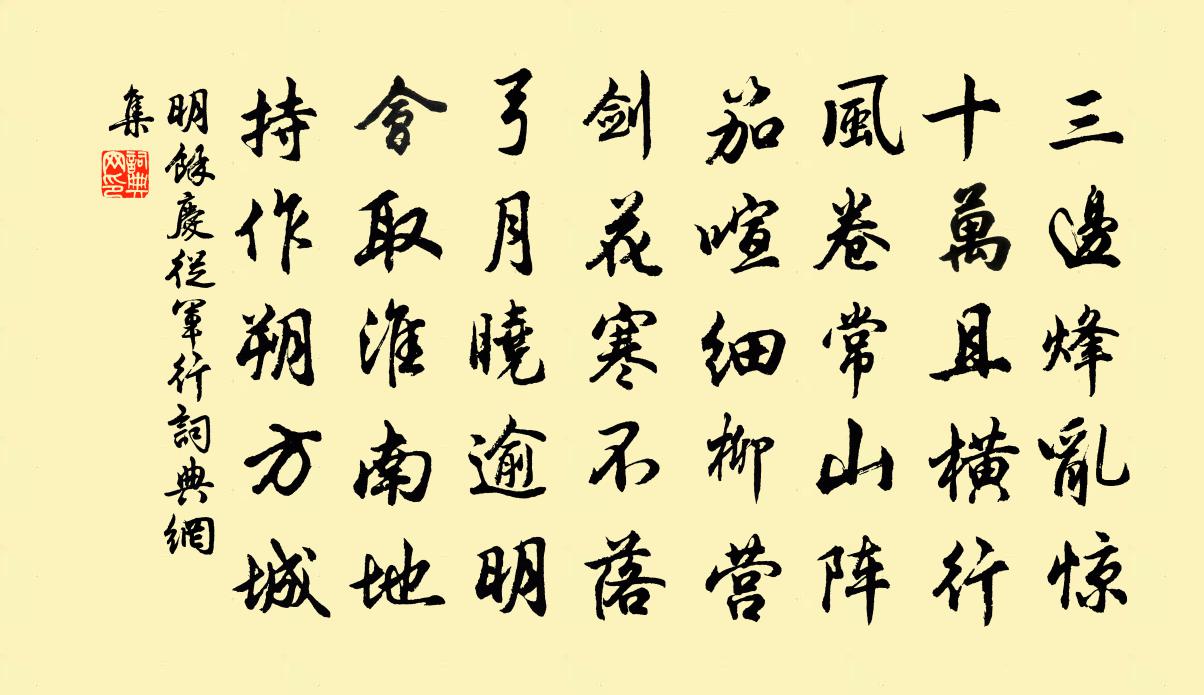 三邊烽亂惊
十萬且橫行
風卷常山阵
笳喧细柳营
劍花寒不落
弓月曉逾明
會取淮南地
持作朔方城
明餘慶從軍行詞典網
集
詞典網印